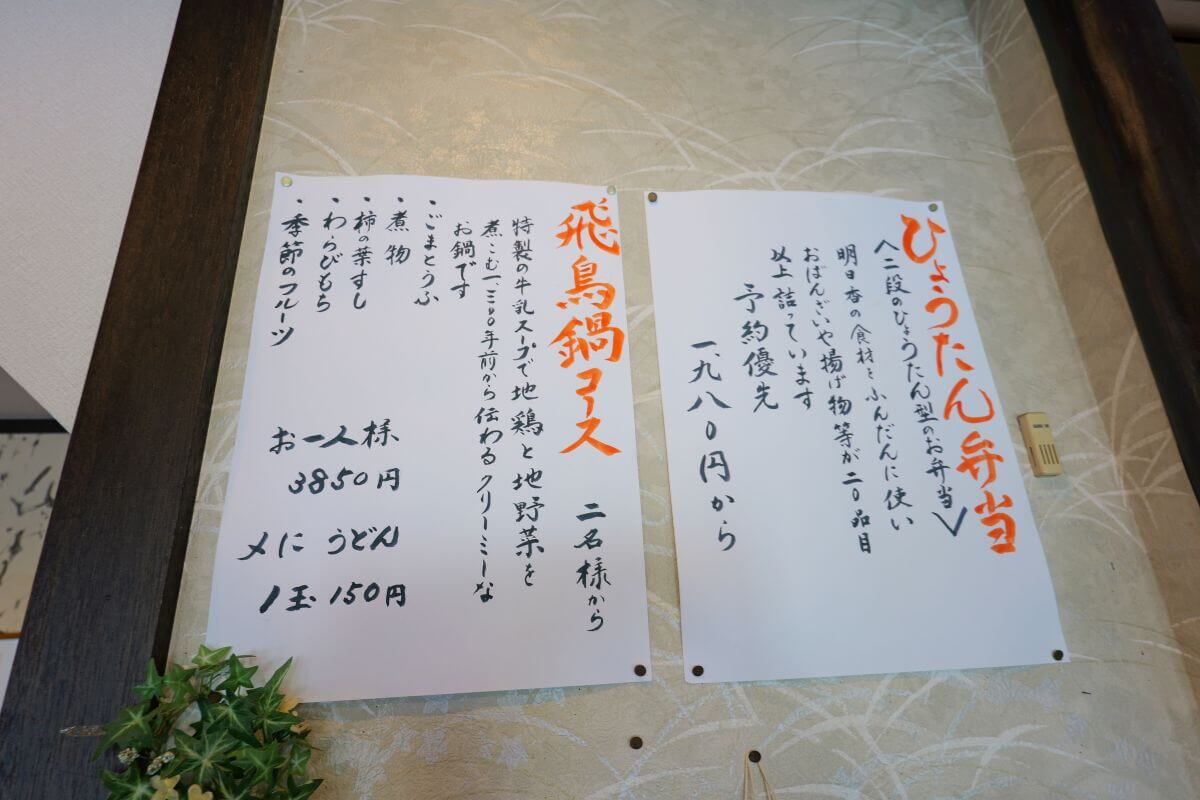 ひょうたん弁当
〈二段のひょうたん型のお弁当〉
明日香の食材をふんだんに使い
おばんざいや揚げ物等が二〇品目
以上詰っています
予約優先
一、九八〇円から
飛鳥鍋コース 二名様から
特製の牛乳スープで地鶏と地野菜を
煮こむ一、三〇〇年前から伝わるクリーミーな
お鍋です
・ごまとうふ
・煮物
・柿の葉すし
・わらびもち
・季節のフルーツ
お一人様
3850円
〆に うどん
1玉 150円